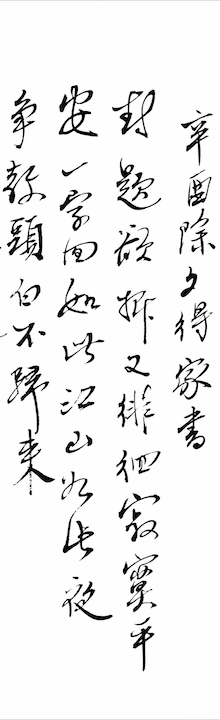 辛酉除夕得家書
封題欲拆又徘徊寂寞平
安一字回如此江山如此夜
争教頭白不歸来